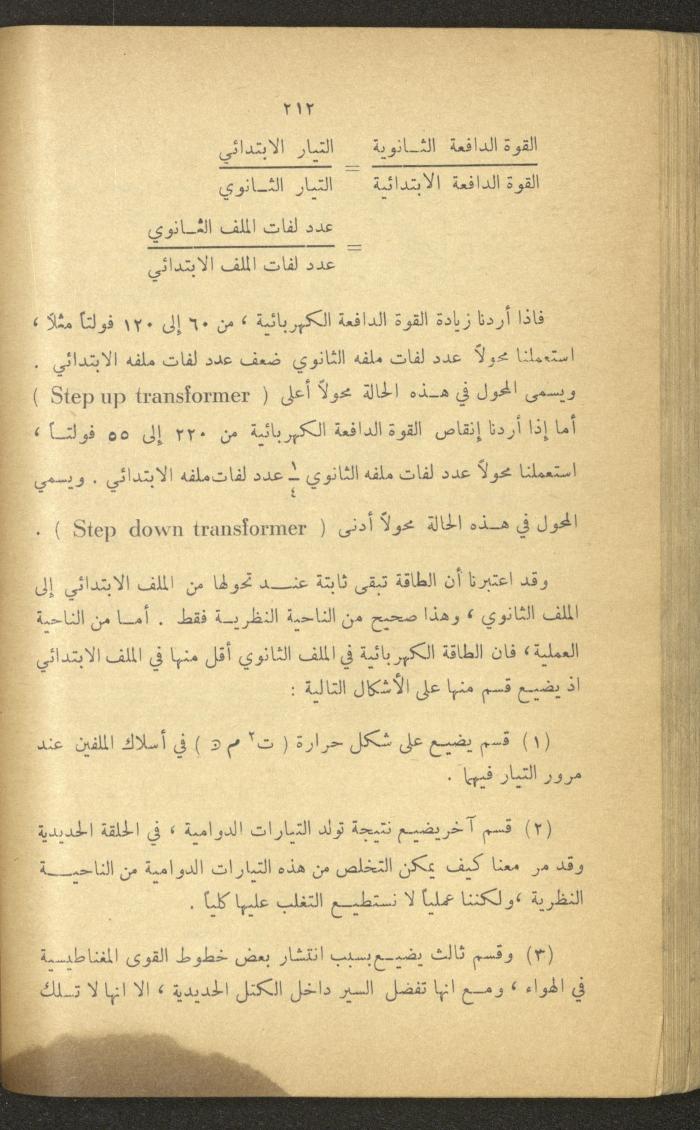 ٢١٢
القوة الدافعة الثــانوية = التيار الابتدائي
القوة الدافعة الابتدائية التيار الثــانوي
= عدد لفات الملف الثــانوي
عدد لفات الملف الابتدائي
فاذا أردنا زيادة القوة الدافعة الكهربائية ، من ٦٠ إلى ١٢٠ فولتاً مثلاً ،
استعملنا محولاً عدد لفات ملفه الثانوي ضعف عدد لفات ملفه الابتدائي .
ويسمى المحول في هــذه الحالة محولاً أعلى ( Step up transformer )
أما إذا أردنا إنقاص القوة الدافعة الكهربائية من ٢٢٠ إلى ٥٥ فولتــاً ،
استعملنا محولاً عدد لفات ملفه الثانوي ١/٤ عدد لفات ملفه الابتدائي . ويسمي
المحول في هــذه الحالة محولاً أدنى ( Step down transformer ) .
وقد اعتبرنا أن الطاقة تبقى ثابتة عنــد تحولها من الملف الابتدائي إلى
الملف الثانوي ، وهذا صحيح من الناحية النظريــة فقط . أمــا من الناحية
العملية ، فان الطاقة الكهربائية في الملف الثانوي أقل منها في الملف الابتدائي
اذ يضيــع قسم منها على الأشكال التالية :
(١) قسم يضيــع على شكل حرارة ( ت٢ م ) في أسلاك الملفين عند
مرور التيار فيهما .
(٢) قسم آخر يضيــع نتيجة تولد التيارات الدوامية ، في الحلقة الحديدية
وقد مر معنا كيف يمكن التخلص من هذه التيارات الدوامية من الناحيــة
النظرية ، ولكننا عملياً لا نستطيــع التغلب عليها كلياً .
(٣) وقسم ثالث يضيــع بسبب انتشار بعض خطوط القوى المغناطيسية
في الهواء ، ومــع انها تفضل السير داخل الكتل الحديدية ، الا انها لا تسلك